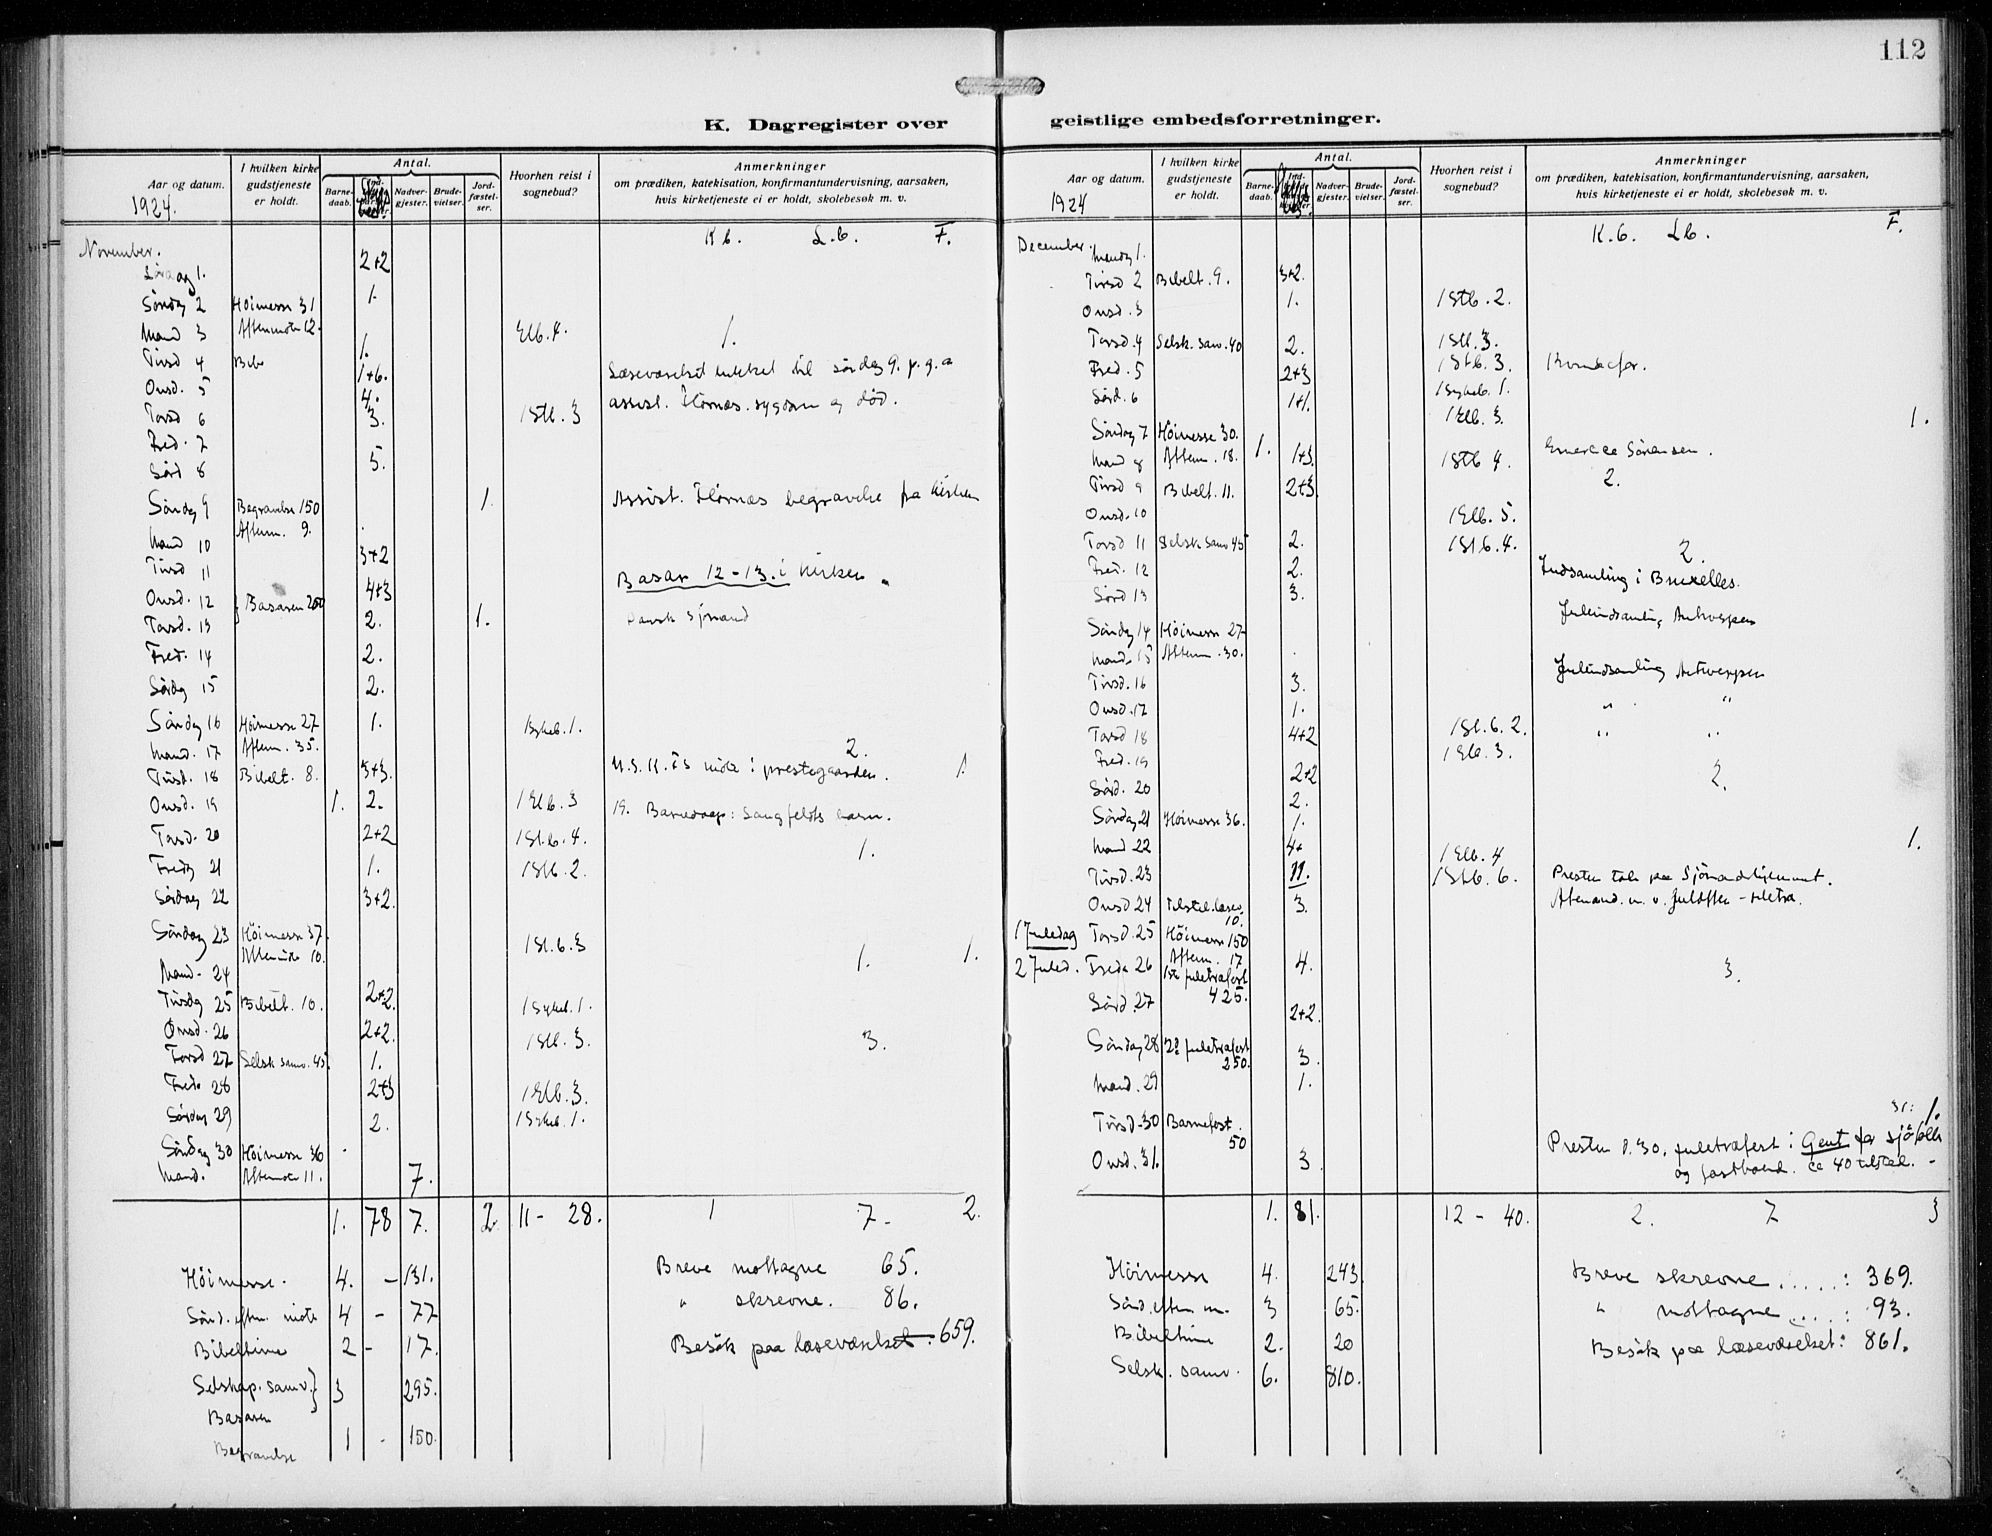 112
K. Dagregister over geistlige embedsforretninger.
Aar og datum.
1924.
I hvilken kirke gudstjeneste er holdt.
Antal.
Barne-daab.
Nadver-gjester.
Brude-vielser.
Jord-fæstel-ser.
Hvorhen reist i sognebud?
Anmerkninger
om prædiken, katekisation, konfirmantundervisning, aarsaken,
hvis kirketjeneste ei er holdt, skolebesøk m. v.
K b. L. b. F.
November.
Lördag 1. 2+2
Söndag 2 Höimesse 31 1.
Mand 3 Aftenmöte 12. Elb. 4. 1.
Tirsd 4 1.
Onsd. 5 1+6. Læseværelset lukket til söndag 9. p. g. a
Torsd 6 4. 3. 1 Stb. 3 assist. Hornæs. sygdom og död.
Fred. 7
Lörd 8 5.
Söndag 9 Begravelse 150 1. Assist. Hornæs begravelse fra kirken
Mand 10 Aftenm. 9.
Tirsd 11 3+2
Onsd. 12 } Basaren 200 4+3 Basar 12-13. i kirken.
Torsd. 13 2. 1. Dansk sjömand
Fred. 14 2.
Lördg 15 2.
Söndag 16 Höimesse 27 1. 1 Sykeb. 1.
Mand. 17 Aftenm. 35. 2.
Tirsd. 18 Bibelt. 8. 3+3. möte i prestegaarden. 1.
Onsd 19 1. 2. 1 Elb. 3 19. Barnedaap: Langfeldts barn.
Torsd. 20 2+2 1 St.b. 4. 1.
Fredg 21 1. 1 Stb. 2.
Lördag 22 3+2.
Söndag 23 Höimesse 37. 1 St.b. 3
Mand. 24 Aftenmöte 10. 1. 1.
Tirsdg 25 Bibelt. 10. 2+2. 1 Sykeb. 1.
Onsd. 26 2+2. 1 Stb. 3. 3.
Torsd 27 Selsk samv. 45. 1.
Fred. 28 2+3 1 Elb. 3.
Lördag 29 2. 1 Sykeb. 1.
Söndag 30 Höimesse 36
Mand. Aftenmöte 11. 7.
1. 78 7. 2. 11 - 28. 1 7 - 2.
Höimesse. 4. - 131. Breve mottagne 65.
Sönd. eften. möte 4 - 77 " skrevne. 86.
Bibeltime 2 - 17. Besök paa læseværelset. 659.
Selskap. samv. } 3 295.
Basaren
Begravelse 1 - 150.
Aar og datum.
1924
I hvilken kirke gudstjeneste er holdt.
Antal.
Barne-daab.
Nadver-gjester.
Brude-vielser.
Jord-fæstel-ser.
Hvorhen reist i sognebud?
Anmerkninger
om prædiken, katekisation, konfirmantundervisning, aarsaken,
hvis kirketjeneste ei er holdt, skolebesøk m. v.
K. b. Lb. F.
December. Mandg 1.
Tirsd 2 Bibelt. 9. 3+2.
Onsd. 3 1. 1 Stb. 2.
Torsd. 4 Selsk. sam. 40 2. 1 Stb. 3.
Fred. 5 2+3 1 Stb. 3. Kvindefor.
Lörd. 6 1+1. 1 Sykeb. 1.
Söndag 7 Höimesse 30. 1 Elb. 3. 1.
Mand 8 Aftenm. 18. 1. 1+3. 1 Stb 4. Sörensen.
Tirsd 9 Bibelt. 11. 2+3. 2.
Onsd. 10 1 Elb. 5.
Torsd 11 Selsk samv 45 2. 1 St.b. 4. 2.
Fred. 12 2. Indsamling i Bruxelles.
Lörd 13 3. Juleindsamling Antwerpen
Söndag 14 Höimesse 27
Mand. 15 Aftenm. 30.
Tirsd. 16 3. Juleindsamling Antwerpen
Onsd. 17 1. " "
Torsd 18 4+2 1 St.b. 2. " "
Fred. 19 1 Elb. 3.
Lörd. 20 2+2 2.
2.
Söndag 21 Höimesse 36. 1.
Mand 22 4+ 1 Elb. 4 1.
Tirsd. 23 11. 1 Stb. 6. Presten tale paa Sjömandshjemmet.
Onsd 24 10. 3. Aftenand. m. v. Julaften
1 Juledag Torsd. 25 Höimesse 150
2 Juled. Freda 26 Aftenm. 17 4. 3.
1ste juletræfest 425.
Lörd. 27 2+2.
Söndag 28 2d juletræfest 250. 3.
Mand. 29 1.
Tirsd. 30 Barnefest. 50 31: 1.
Onsd. 31. 3 Presten d. 30. juletræfest i Gent for sjöfolk
og fastboend. ca 40 tilsted.
1. 81. 12 - 40. 2. 7 3
Höimesse 4. 243. Breve skrevne ..... : 369.
Sönd. eften m. 3 65. " mottagne .... : 93.
Bibeltime 2. 20 Besök paa læseværelset: 861.
Selsk. samv. 6. 810.